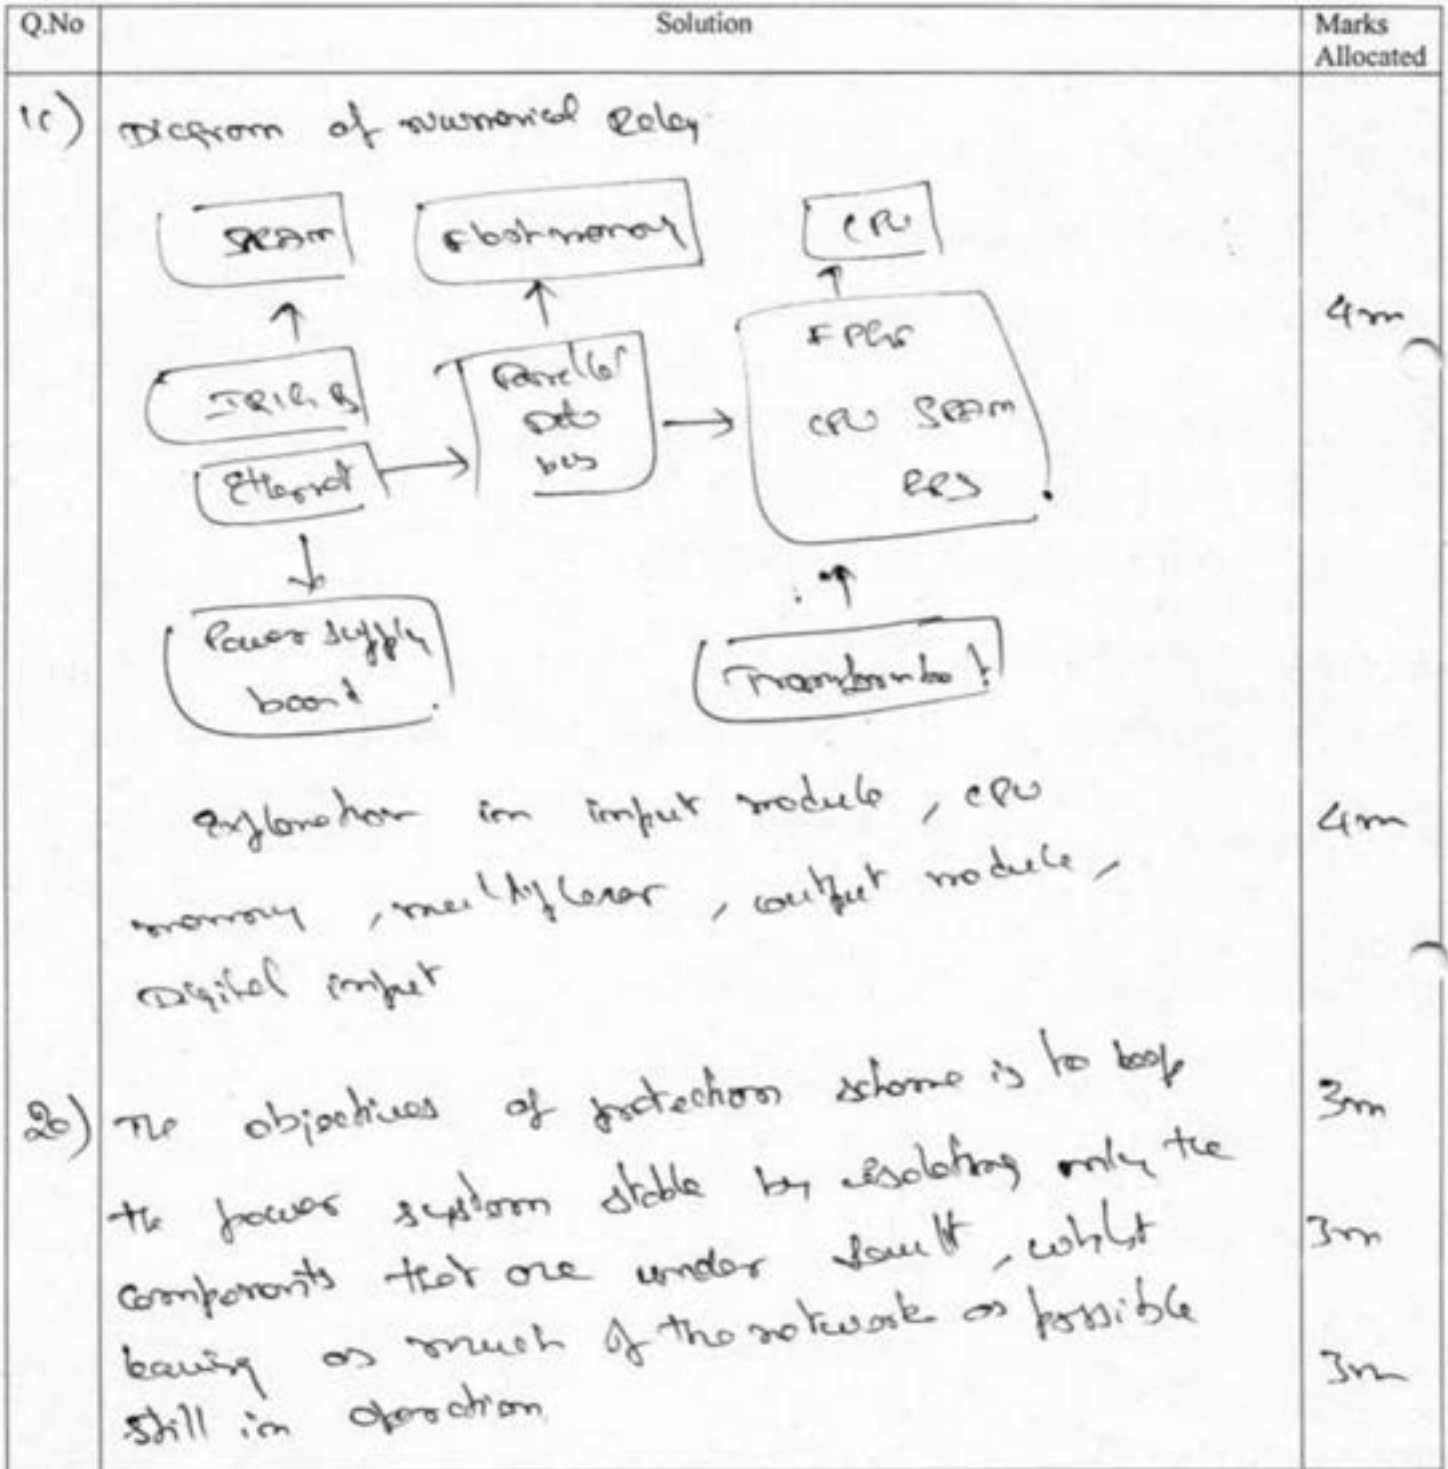 Q.No Solution Marks Allocated
1c) Diagram of Numerical Relay
SRAM
Flash memory
CPU
4m
IRIG B
Ethernet
Parellel
Data
bus
FPGA
CPU SRAM
Power supply
board
Explanation in input module, CPU 4m
memory, multiplexer, output module,
Digital input
The objectives of protection scheme is to keep 3m
the power system stable by isolating only the
components that are under fault, whilst 3m
leaving as much of the network as possible
still in operation 3m